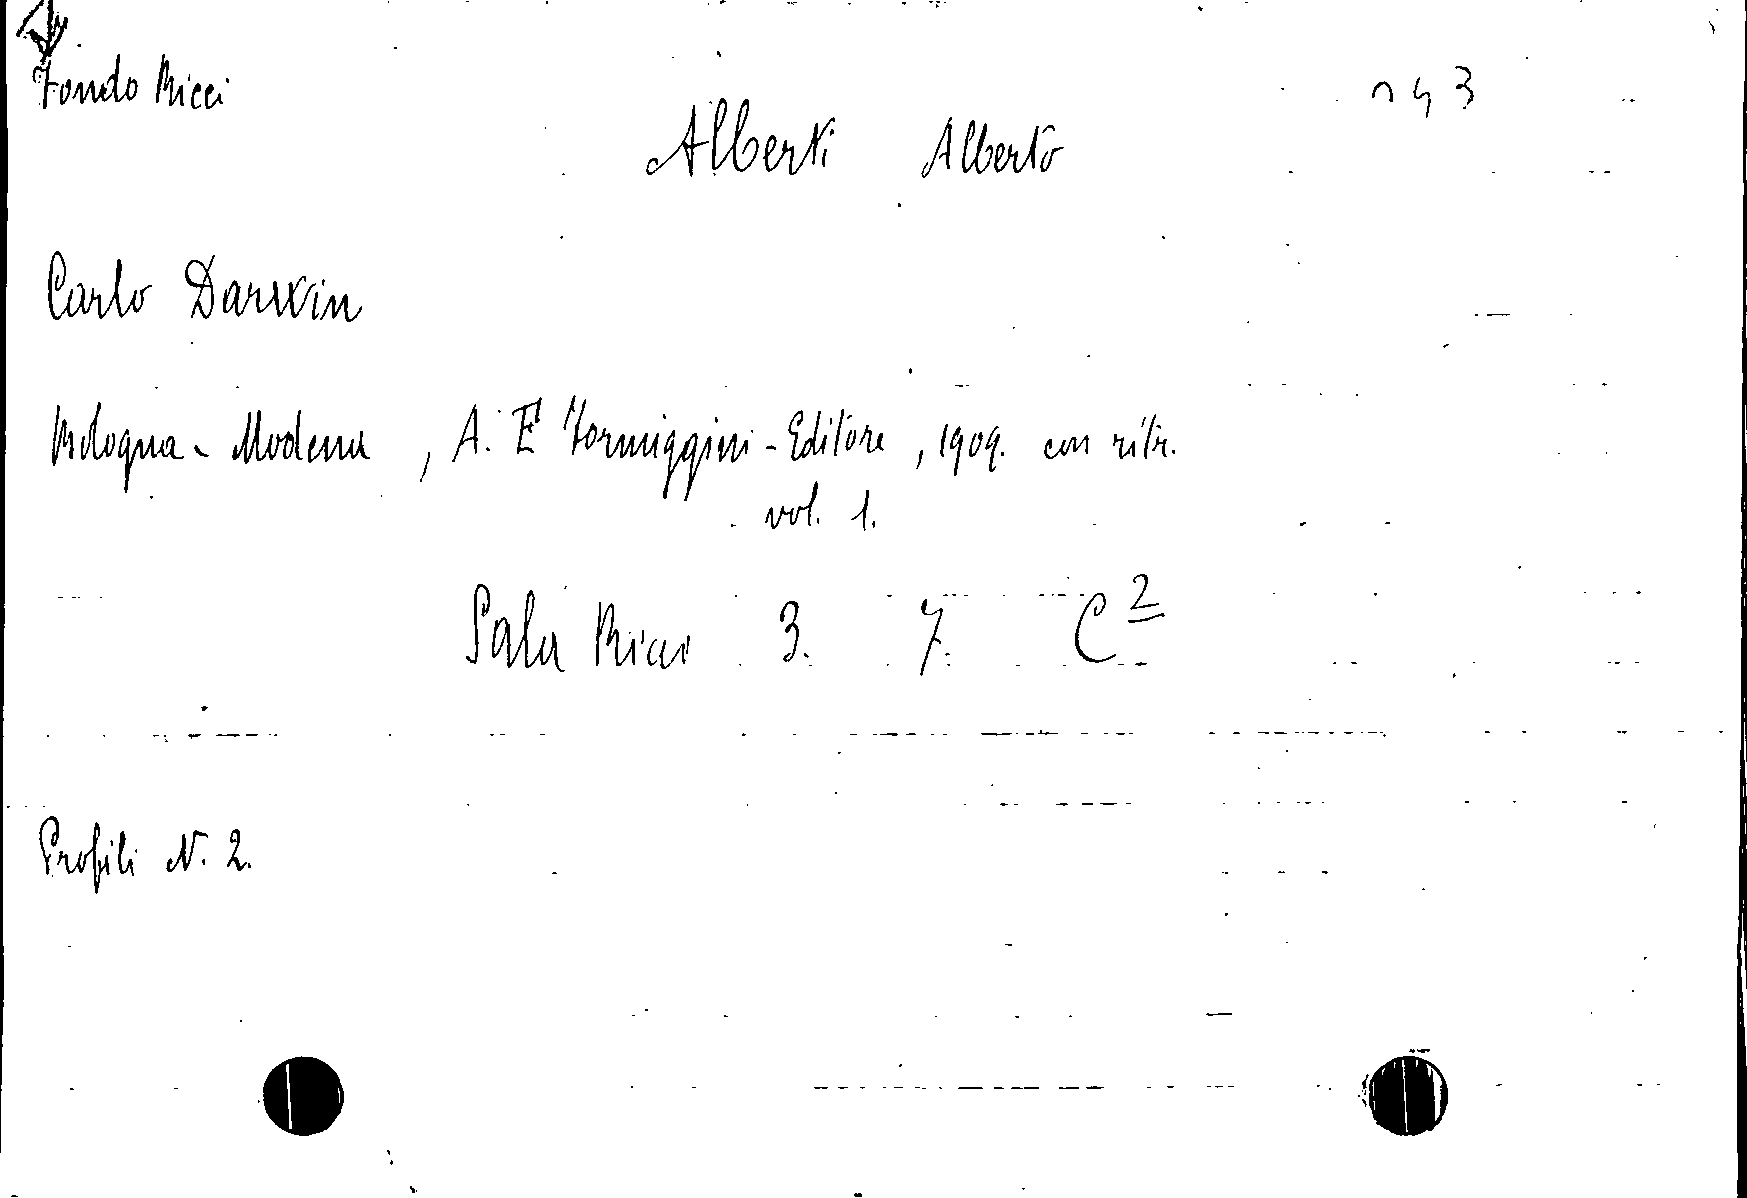 Fondo Ricci
n 4 3
Alberti Alberto
Carlo Darwin
Bologna - Modena , A. E Formiggini - Editore , 1909. con ritr.
vol. 1.
Sala Ricci 3. 7. C 2
Profili N. 2.